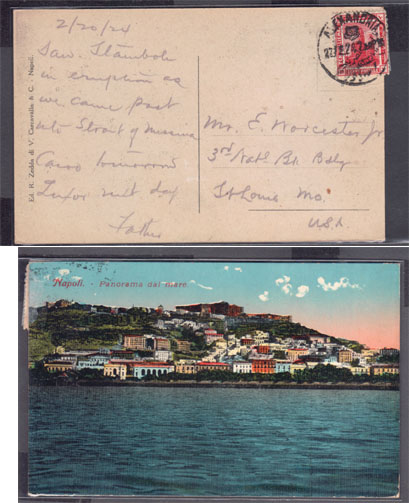 2/20/24
Saw Stamboli
in eruption as
we came past
Strait of Messina
Cairo tomorrow
Luxor next day
Father
Mr. E. Worcester Jr
3rd Natl Bk Bldg
St Louis Mo.
U.S.A.
ALEXANDRIA
Ed. R. Zedda di V. Carcavallo & C. - Napoli.
Napoli. - Panorama dal mare